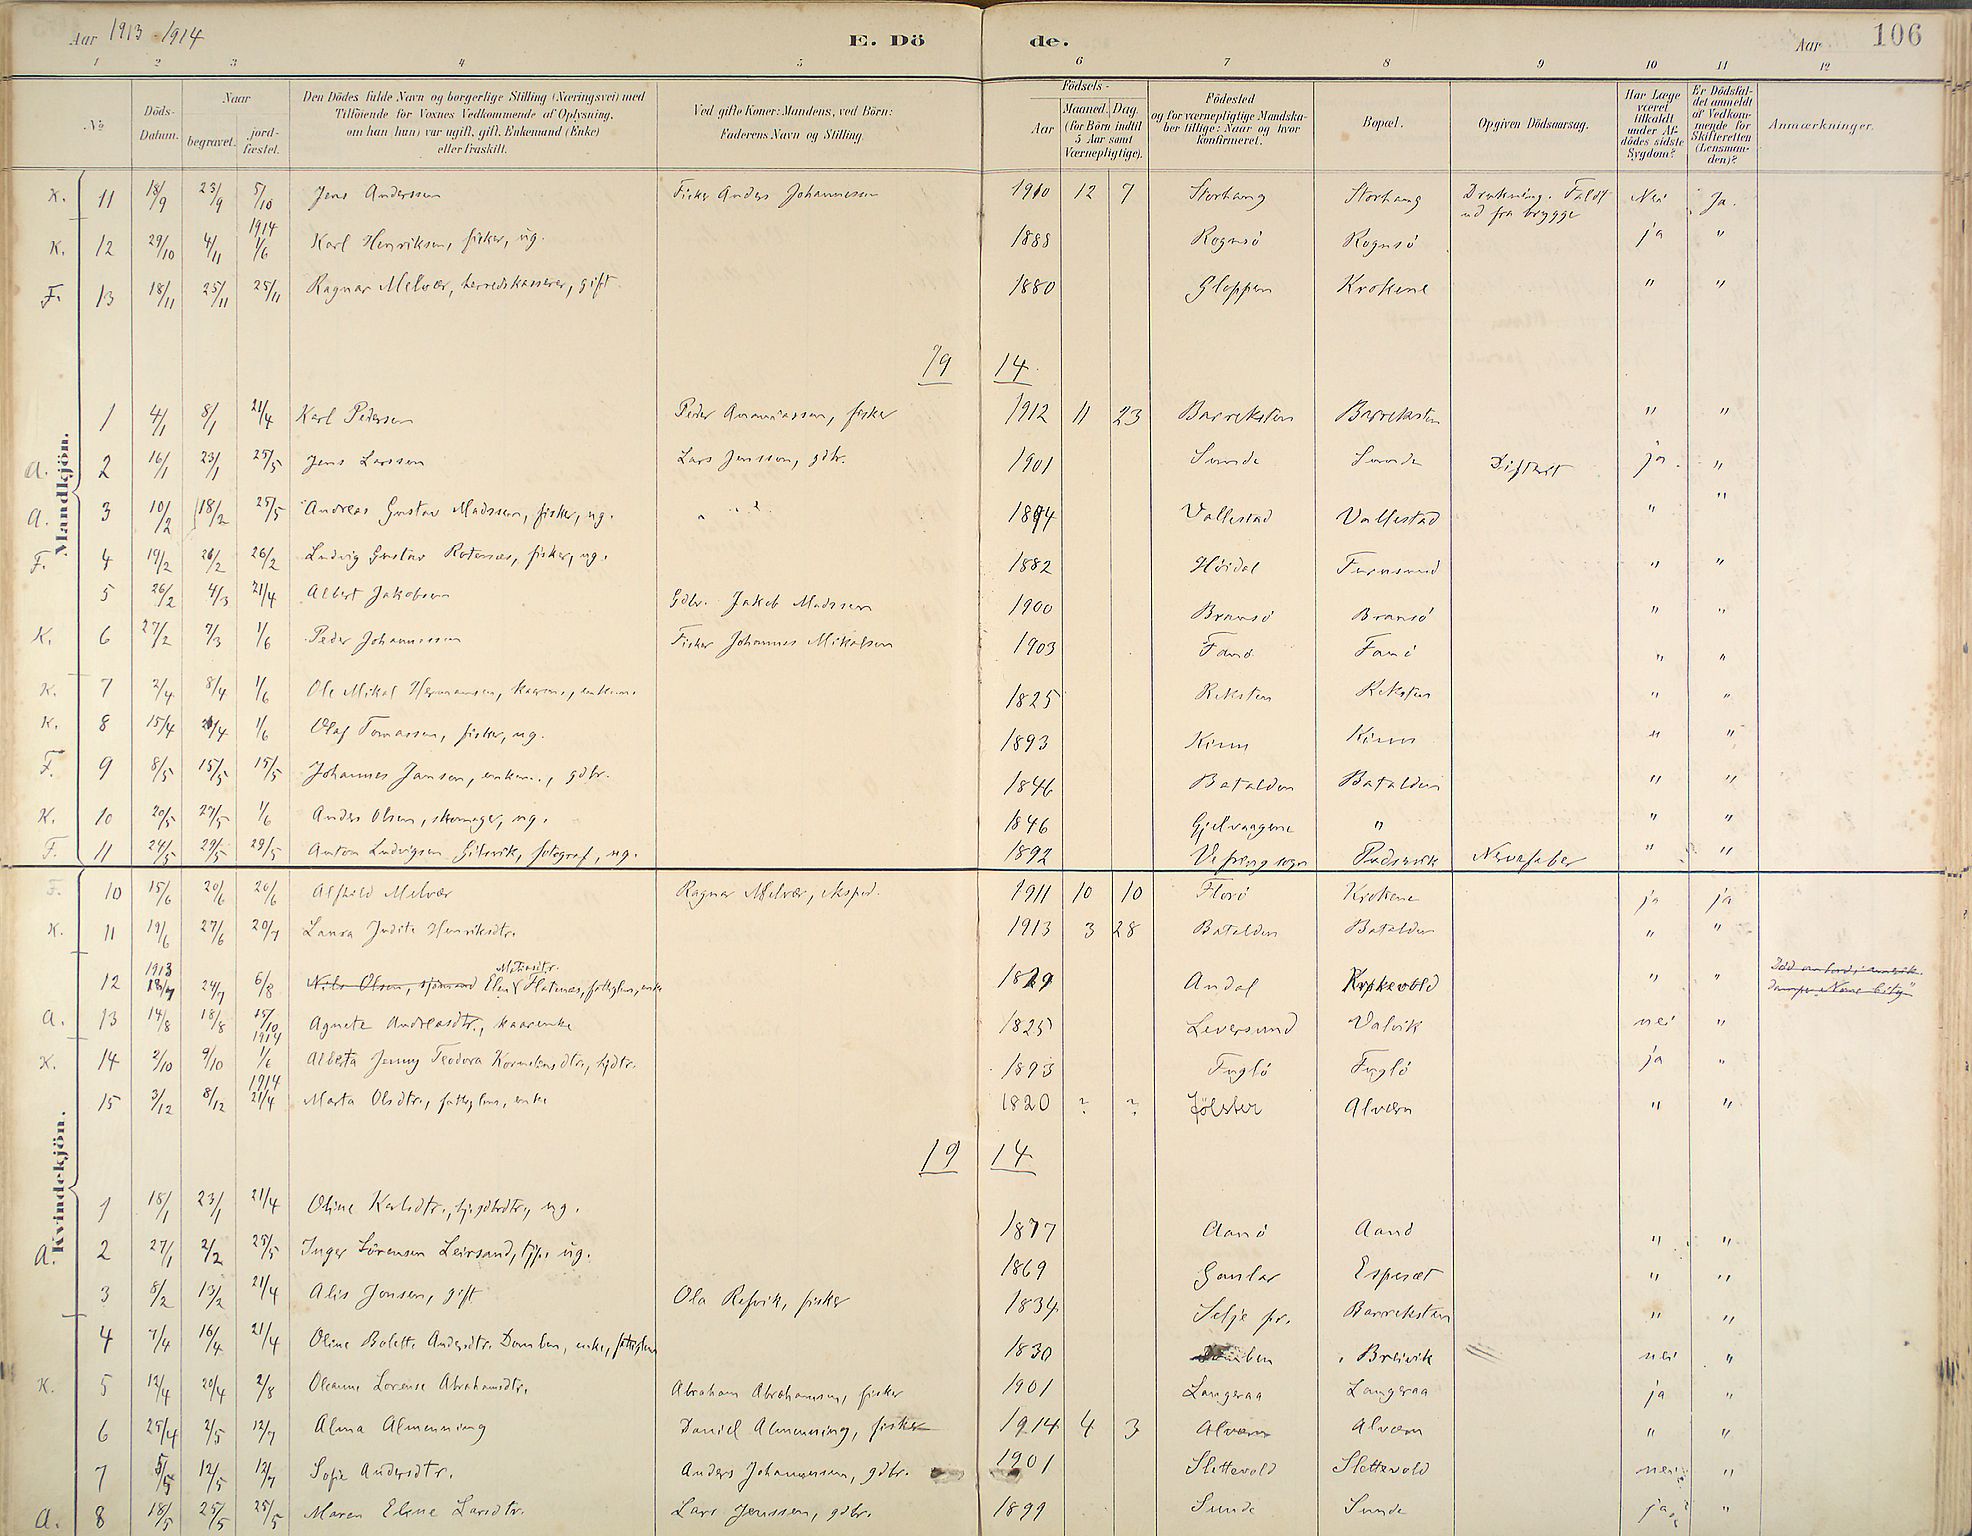 Aar 1913-1914 E. Dö de. Aar 106
1 2 3 4 5 6 7 8 9 10 11 12
No Döds-Datum. Naar begravet. jord-fæstet. Den Dödes fulde Navn og borgerlige Stilling (Næringsvei) med Tilföiende for Voxnes Vedkommende af Oplysning, om han (hun) var ugift, gift, Enkemand (Enke) eller fraskilt. Ved gifte Koner: Mandens, ved Börn: Faderens Navn og Stilling. Födsels- Aar Maaned. Dag. (for Börn indtil 5 Aar samt Værnepligtige). Födested og for værnepligtige Mandskaber tillige: Naar og hvor konfirmeret. Bopæl. Opgiven Dödsaarsag. Har Læge været tilkaldt under Afdödes sidste Sygdom? Er Dödsfaldet anmeldt af Vedkommende for Skifteretten (Lensmanden)? Anmærkninger.
Mandkjön.
K. 11 18/9 23/9 5/10 Jens Anderssen Fisker Anders Johannessen 1910 12 7 Storhaug Storhaug Drukning. Faldt ud fra brygge Nei Ja.
K. 12 29/10 4/11 1914 1/6 Karl Henriksen, fisker, ug. 1888 Rognsö Rognsö ja "
F. 13 18/11 25/11 25/11 Ragnar Melvær, herredskasserer, gift 1880 Gloppen Krokene " "
19 14
1 4/1 8/1 21/4 Karl Pedersen Peder Ananiassen, fisker 1912 11 23 Barreksten Barreksten " "
A. 2 16/1 23/1 25/5 Jens Larssen Lars Jenssen, gdbr. 1901 Sunde Sunde Difterit ja "
A. 3 10/2 18/2 25/5 Andreas Gustav Madssen, fisker, ug. " " " 1894 Vallestad Vallestad " "
F. 4 19/2 26/2 26/2 Ludvig Gustav Rotenæs, fisker, ug. 1882 Höidal Furusund " "
5 26/2 4/3 21/4 Albert Jakobsen Gdbr. Jakob Madssen 1900 Bransö Bransö " "
K. 6 27/2 7/3 1/6 Peder Johannessen Fisker Johannes Mikalsen 1903 Fanö Fanö " "
K. 7 2/4 8/4 1/6 Ole Mikal Hermansen, kaarm., enkem. 1825 Reksten Reksten " "
K. 8 15/4 /4 1/6 Olaf Tomassen, fisker, ug. 1893 Kinn Kinn " "
F. 9 8/5 15/5 15/5 Johannes Jansen, enkem., gdbr. 1846 Batalden Batalden " "
K. 10 20/5 27/5 1/6 Anders Olsen, skomager, ug. 1846 Gjelvaagene " " "
F. 11 24/5 29/5 29/5 Anton Ludvigsen Gilsvik, fotograf, ug. 1892 Vefring sogn Pudsevik Nervefeber " "
Kvindekjön.
F. 10 15/6 20/6 20/6 Alfhild Melvær Ragnar Melvær, eksped. 1911 10 10 Florö Krokene ja ja
K. 11 19/6 27/6 20/7 Laura Judite Henriksdtr. 1913 3 28 Batalden Batalden " "
12 1913 /7 24/7 6/8 Nils Olsen, sjömand Elen Flatenæs, fattiglem, enke 1829 Andal " "
A. 13 14/8 18/8 15/10 Agnete Andreasdtr., kaarenke 1825 Leversund Valvik nei "
K. 14 2/10 9/10 1914 1/6 Alberta Jenny Teodora Korneliusdtr., tjdtr. 1893 Fuglö Fuglö ja "
15 3/12 8/12 1914 21/4 Marta Olsdtr., fattiglem, enke 1820 ? ? Jölster Alværn " "
19 14
1 18/1 23/1 21/4 Oline Karlsdtr., ug. 1877 Aanö Aanö " "
A. 2 27/1 2/2 25/5 Inger Sörensen Leirsund, tjp., ug. 1869 Gaular Espeset " "
3 8/2 13/2 21/4 Alis Jonsen, gift Ola Refvik, fisker 1834 Selje pr. Barreksten " "
4 7/4 16/4 21/4 Oline Bolette Andersdtr. Domben, enke, fattiglem 1830 Domben Breivik nei "
K. 5 12/4 20/4 2/8 Oleanne Lorense Abrahamsdtr. Abraham Abrahamsen, fisker 1901 Langeraa Langeraa ja "
6 25/4 2/5 12/7 Alma Almenning Daniel Almenning, fisker 1914 4 3 Alværn Alværn " "
7 5/5 12/5 12/7 Sofie Andersdtr. Anders Johannessen, gdbr. 1901 Slettevold Slettevold nei "
A. 8 18/5 25/5 25/5 Maren Elene Larsdtr. Lars Jenssen, gdbr. 1899 Sunde Sunde ja "